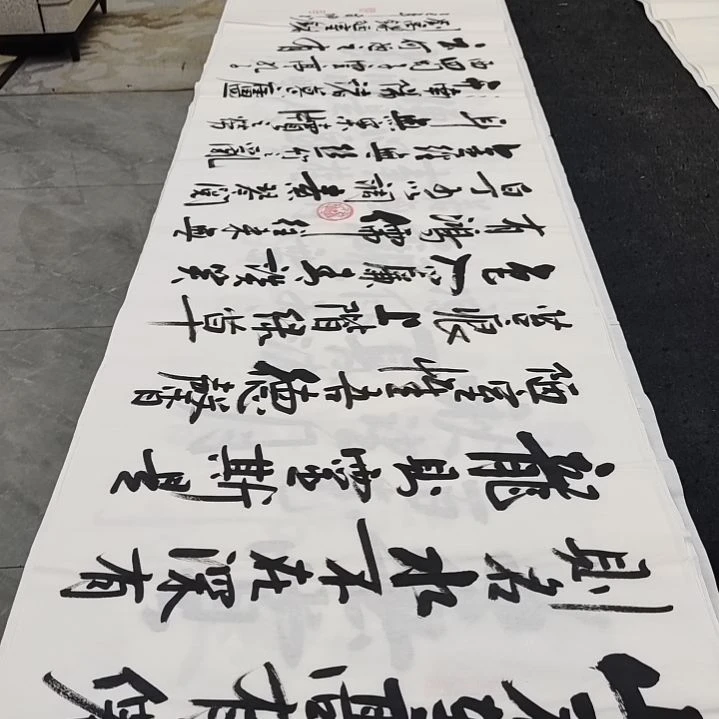 山不在高有仙
則名水不在深有
龍則靈斯是
陋室惟吾德馨
苔痕上階綠草
色入簾青談笑
有鴻儒往來無
白丁可以調素琴閱
金經無絲竹之亂
耳無案牘之勞
形南陽諸葛廬
西蜀子雲亭孔子
云何陋之有